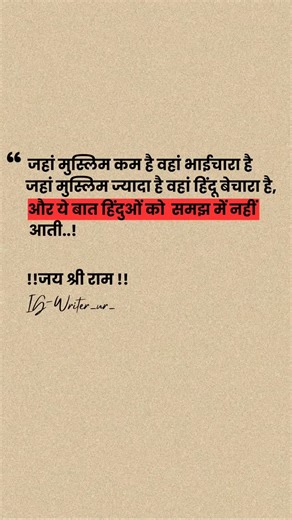 “ जहां मुस्लिम कम है वहां भाईचारा है
जहां मुस्लिम ज्यादा है वहां हिंदू बेचारा है,
और ये बात हिंदुओं को समझ में नहीं
आती..!
!!जय श्री राम !!
IG-Writer_ur_